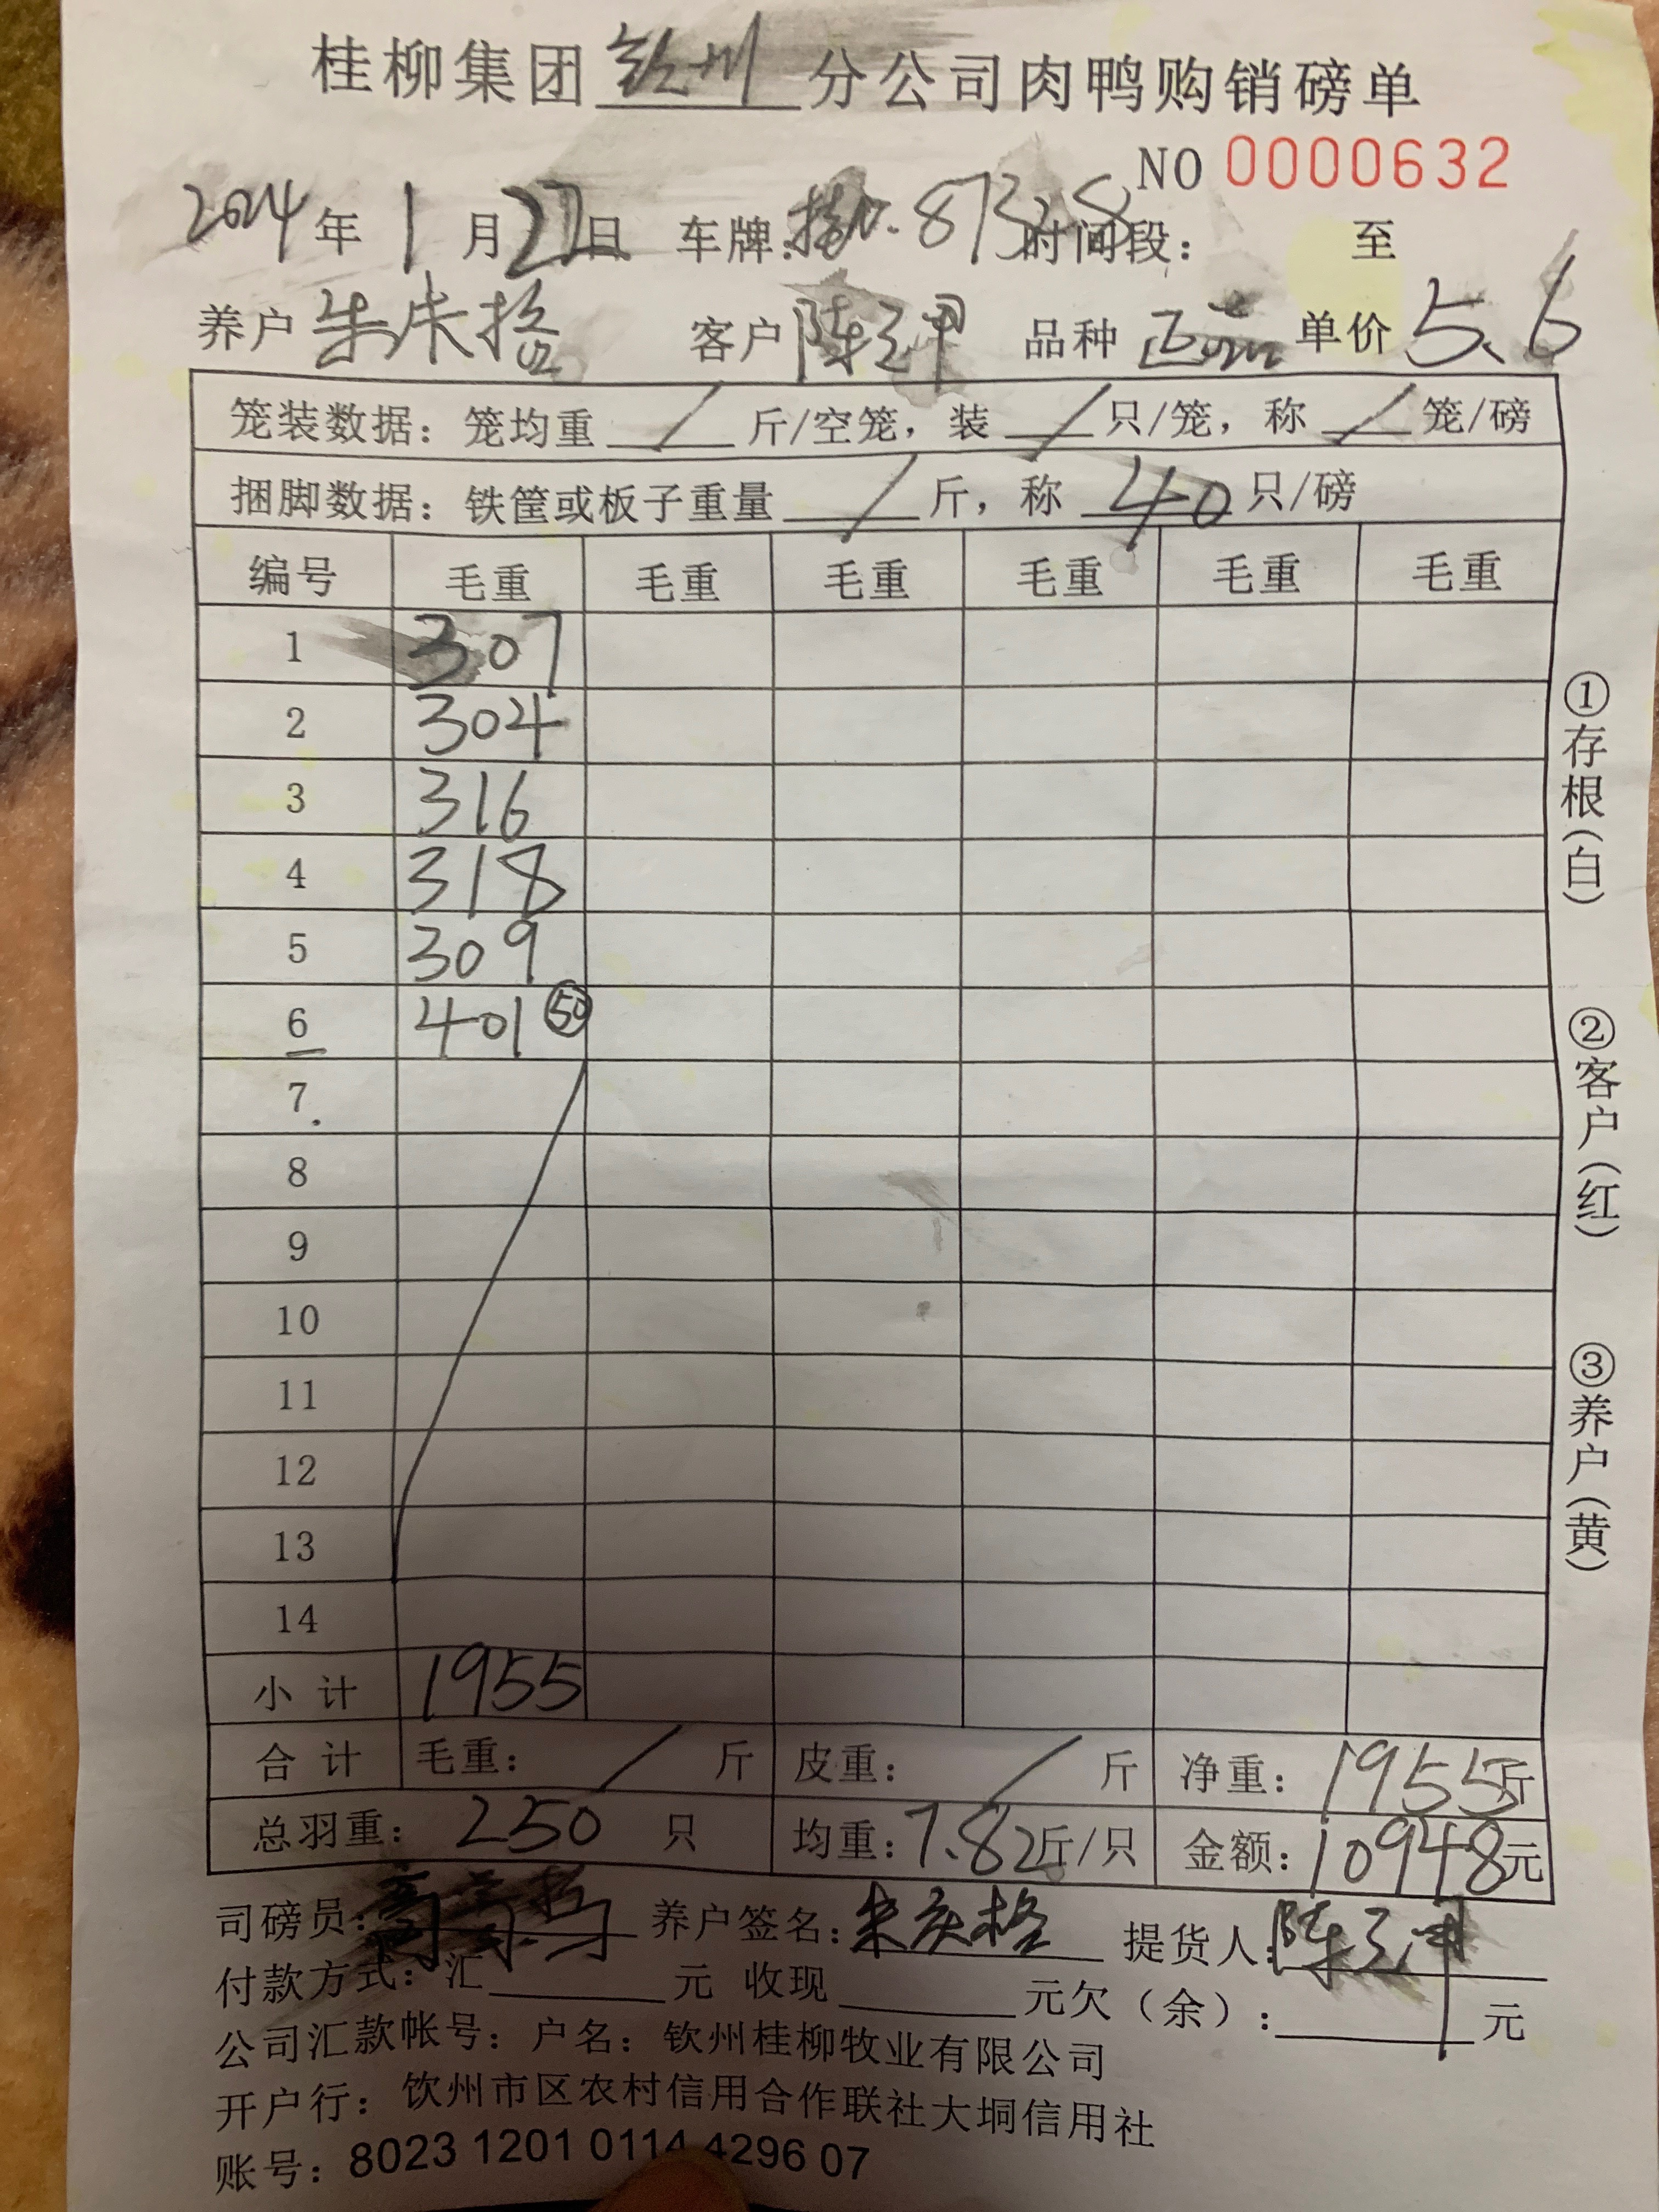 桂柳集团钦州分公司肉鸭购销磅单
NO 0000632
2024年1月27日 车牌: 时间段: 至
养户 客户 陈 品种 正品 单价 5.6
笼装数据: 笼均重 / 斤/空笼, 装 / 只/笼, 称 / 笼/磅
捆脚数据: 铁筐或板子重量 / 斤, 称 40 只/磅
编号 毛重 毛重 毛重 毛重 毛重 毛重
1 307
2 304
3 316
4 318
5 309
6 401 50
7
8
9
10
11
12
13
14
小计 1955
合计 毛重: / 斤 皮重: / 斤 净重: 1955斤
总羽重: 250 只 均重: 7.82斤/只 金额: 10948元
司磅员: 养户签名: 朱庆格 提货人: 陈
付款方式: 汇 元 收现 元欠(余): 元
公司汇款帐号: 户名: 钦州桂柳牧业有限公司
开户行: 钦州市区农村信用合作联社大垌信用社
账号: 8023 1201 0114 4296 07
①存根(白)
②客户(红)
③养户(黄)